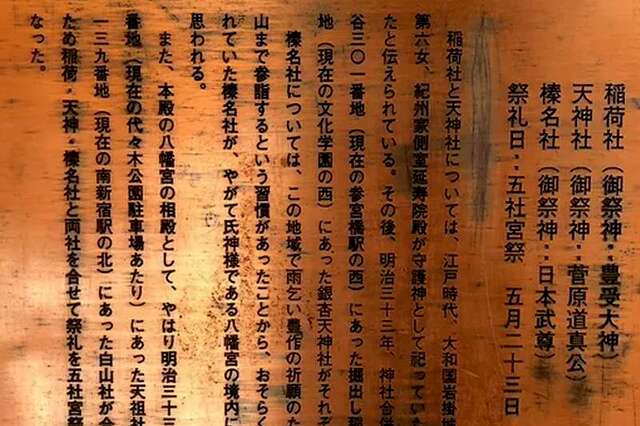 稲荷社（御祭神・・豊受大神）
天神社（御祭神・・菅原道真公）
榛名社（御祭神・・日本武尊）
祭礼日・・五社宮祭　五月二十三日
稲荷社と天神社については、江戸時代、大和国岩掛城
第六女、紀州家側室延寿院殿が守護神として祀っていた
たと伝えられている。その後、明治三十三年、神社合併
谷三〇一番地（現在の参宮橋駅の西）にあった掘出し稲
地（現在の文化学園の西）にあった銀杏天神社がそれぞ
榛名社については、この地域で雨乞い豊作の祈願のた
山まで参詣するという習慣があったことから、おそらく
れていた榛名社が、やがて氏神様である八幡宮の境内に
思われる。
また、本殿の八幡宮の相殿として、やはり明治三十三
番地（現在の代々木公園駐車場あたり）にあった天祖社
一三九番地（現在の南新宿駅の北）にあった白山社が合
ため稲荷・天神・榛名社と両社を合せて祭礼を五社宮祭
なった。